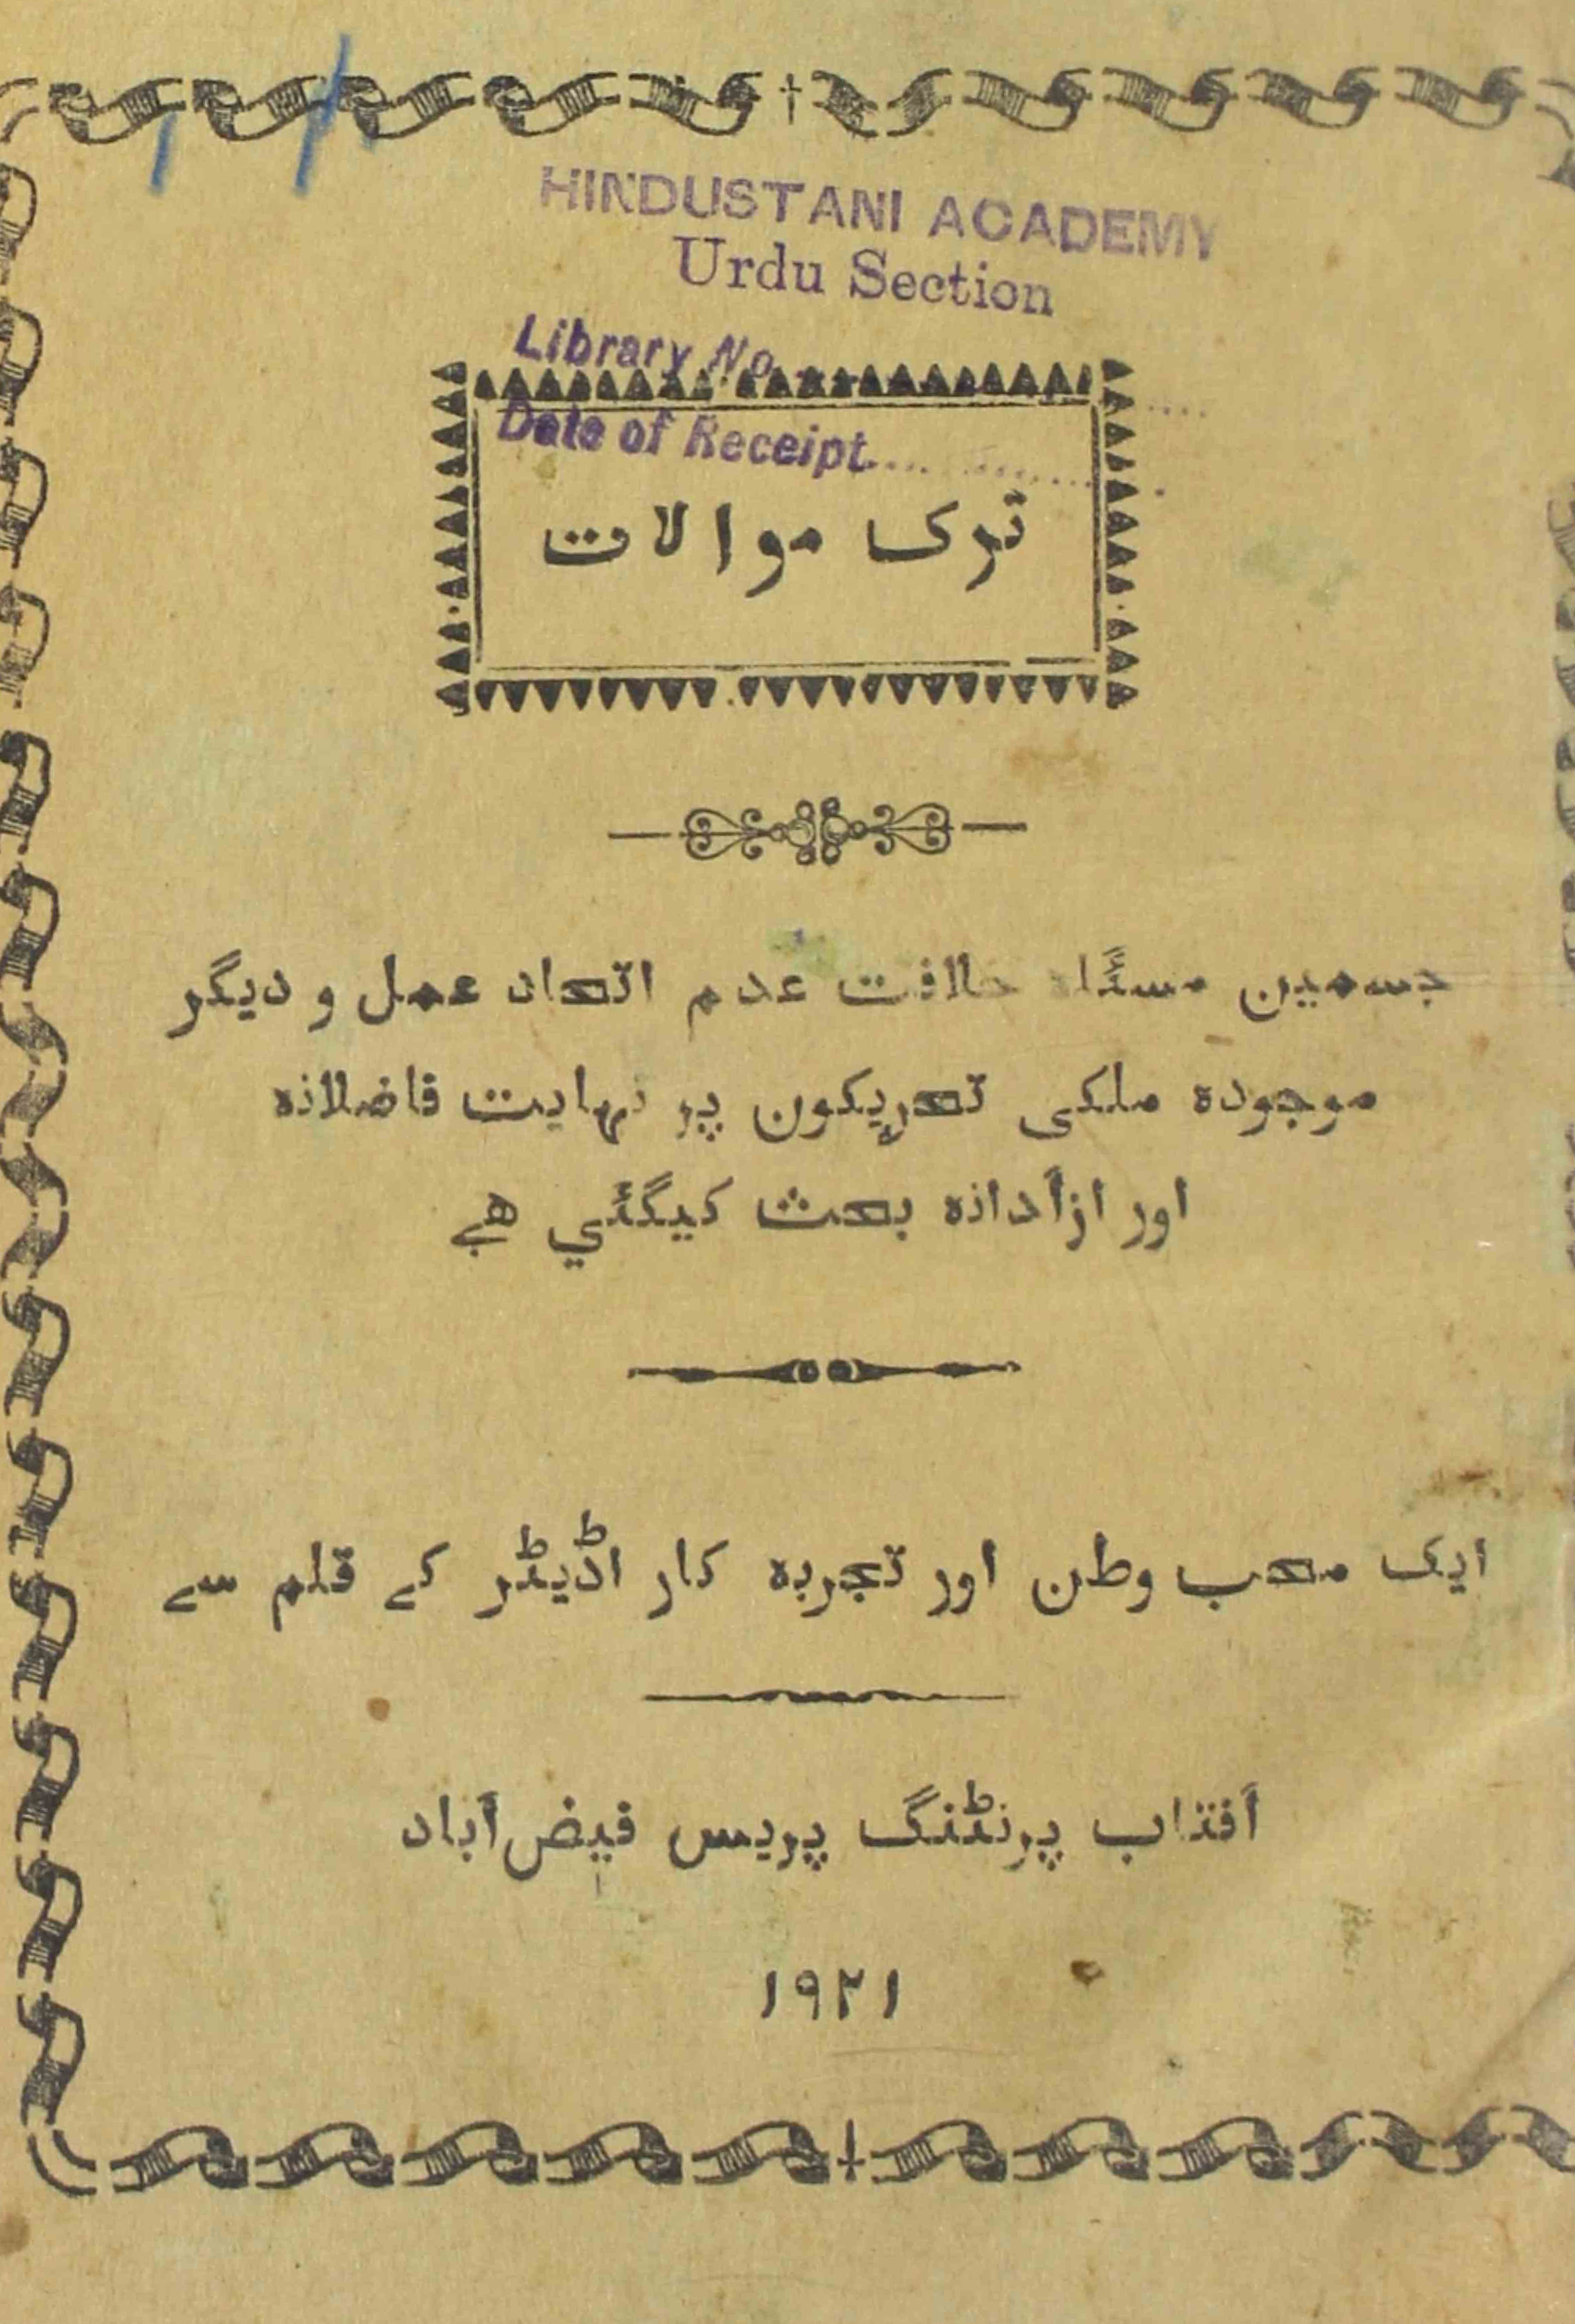 HINDUSTANI ACADEMY
Urdu Section
Library No.
Date of Receipt
ترک موالات
جسمین مسئلہ خلافت عدم اتحاد عمل و دیگر
موجودہ ملکی تحریکون پر نہایت فاضلانہ
اور ازادانہ بحث کیگئي هے
ایک محب وطن اور تجربہ کار اڈیٹر کے قلم سے
آفتاب پرنٹنگ پریس فیض آباد
۱۹۲۱